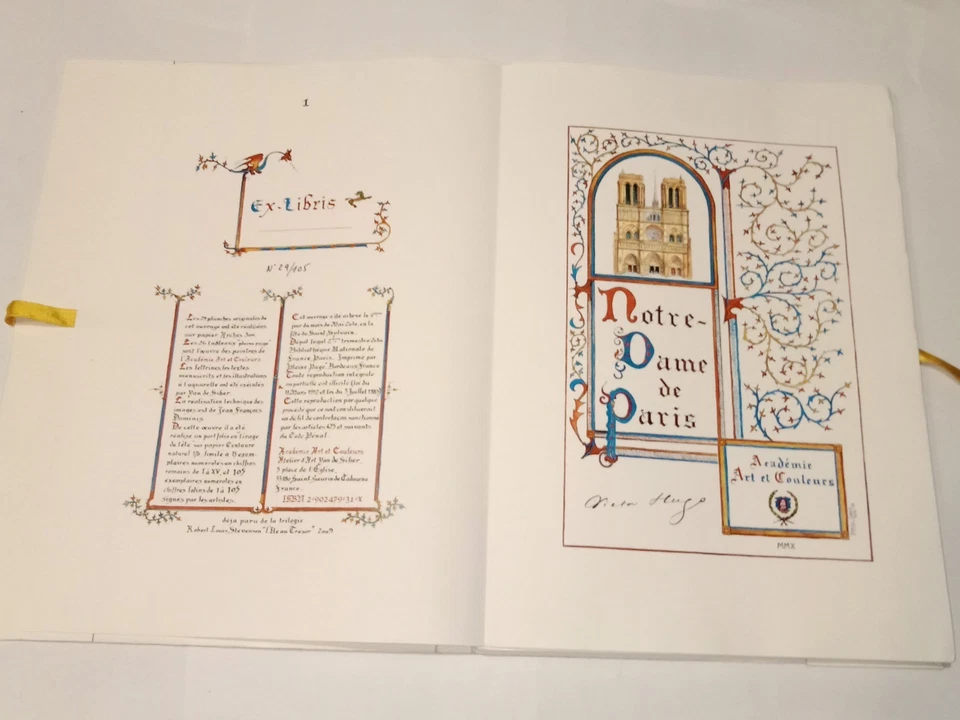 1
Ex-Libris
N° 29/105
Les 29 planches originales de
cet ouvrage ont été réalisées
sur papier Arches 300.
Les 24 tableaux "pleine page"
sont l'œuvre des peintres de
l'Académie Art et Couleurs
Les lettrines, les textes
manuscrits et les illustrations
à l'aquarelle ont été exécutés
par Yan de Siber.
La réalisation technique des
images est de Jean François
De cette œuvre il a été
réalisé un portfolio en tirage
de tête sur papier Centaure
naturel
plaires numérotés en chiffres
romains de I à XV, et 105
exemplaires numérotés en
chiffres latins de 1 à 105
signés par les artistes.
Cet ouvrage a été achevé le
jour du mois de Mai 2010, en la
fête de Saint Sylvain.
Dépôt légal 2ème trimestre 2010
Bibliothèque Nationale de
France, Paris. Imprimé par
Pleine Page, Bordeaux, France
Toute reproduction intégrale
ou partielle est illicite (loi du
11 Mars 1957 et loi du 3 Juillet 1985)
Cette reproduction par quelque
procédé que ce soit constituerait
un délit de contrefaçon sanctionné
par les articles 425 et suivants
du Code Pénal.
Académie Art et Couleurs
Atelier d'Art Yan de Siber,
5 place de l'Église,
Saint Seurin de Cadourne
France.
ISBN 2-902479-31-X
déjà paru de la trilogie
Robert Louis Stevenson "l'Île au Trésor" 2009
Notre-
Dame
de
Paris
Victor Hugo
Académie
Art et Couleurs
MMX